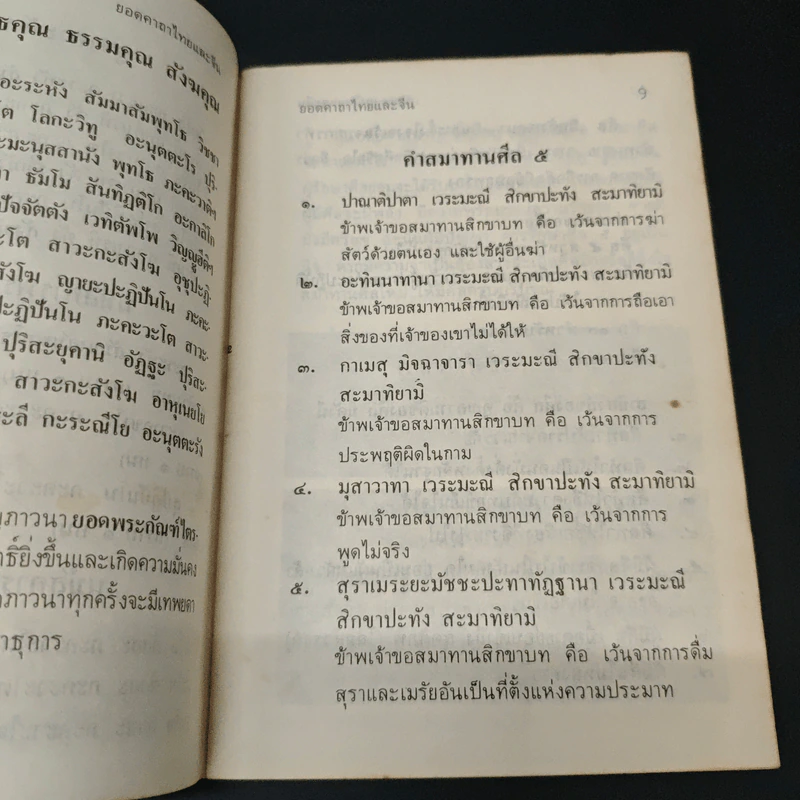 ยอดคาถาไทยและจีน
ธรรมคุณ สังฆคุณ
อะระหัง สัมมาสัมพุทโธ วิชชา
โลกะวิทู อะนุตตะโร ปุริ-
มะนุสสานัง พุทโธ ภะคะวาติฯ
ธัมโม สันทิฏฐิโก อะกาลิโก
ปัจจัตตัง เวทิตัพโพ วิญญูฮีติฯ
สาวะกะสังโฆ อุชุปะฏิ-
สังโฆ ญายะปะฏิปันโน ภะคะ-
ปะฏิปันโน ภะคะวะโต สาวะ-
ปุริสะยุคานิ อัฏฐะ ปุริสะ-
สาวะกะสังโฆ อาหุเนยโย
กะระณีโย อะนุตตะรัง
ภาวนา ยอดพระกัณฑ์ไตร-
ยิ่งขึ้นและเกิดความมั่นคง
ภาวนาทุกครั้งจะมีเทพยดา
ธุการ
ยอดคาถาไทยและจีน 9
คำสมาทานศีล ๕
๑. ปาณาติปาตา เวระมะณี สิกขาปะทัง สะมาทิยามิ
ข้าพเจ้าขอสมาทานสิกขาบท คือ เว้นจากการฆ่า
สัตว์ด้วยตนเอง และใช้ผู้อื่นฆ่า
๒. อะทินนาทานา เวระมะณี สิกขาปะทัง สะมาทิยามิ
ข้าพเจ้าขอสมาทานสิกขาบท คือ เว้นจากการถือเอา
สิ่งของที่เจ้าของเขาไม่ได้ให้
๓. กาเมสุ มิจฉาจารา เวระมะณี สิกขาปะทัง
สะมาทิยามิ
ข้าพเจ้าขอสมาทานสิกขาบท คือ เว้นจากการ
ประพฤติผิดในกาม
๔. มุสาวาทา เวระมะณี สิกขาปะทัง สะมาทิยามิ
ข้าพเจ้าขอสมาทานสิกขาบท คือ เว้นจากการ
พูดไม่จริง
๕. สุราเมระยะมัชชะปะทาทัฏฐานา เวระมะณี
สิกขาปะทัง สะมาทิยามิ
ข้าพเจ้าขอสมาทานสิกขาบท คือ เว้นจากการดื่ม
สุราและเมรัยอันเป็นที่ตั้งแห่งความประมาท